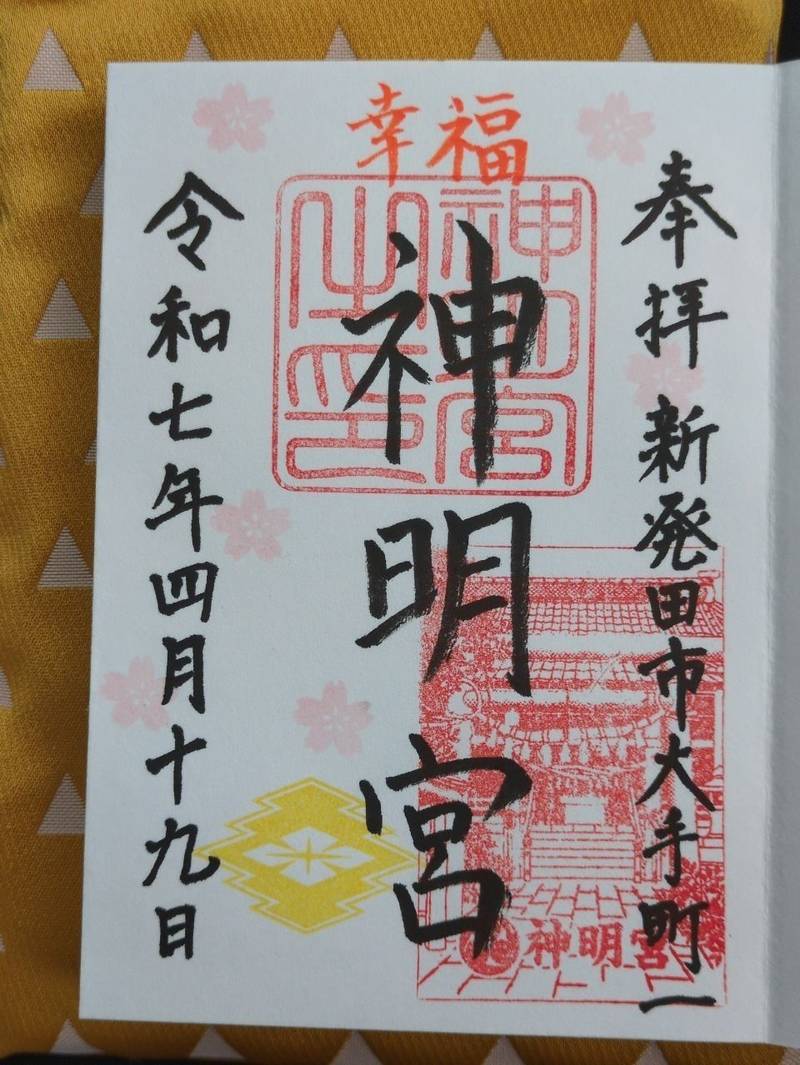 奉拝 新発田市大手町一
幸福
神明宮
神明宮之印
神明宮
令和七年四月十九日